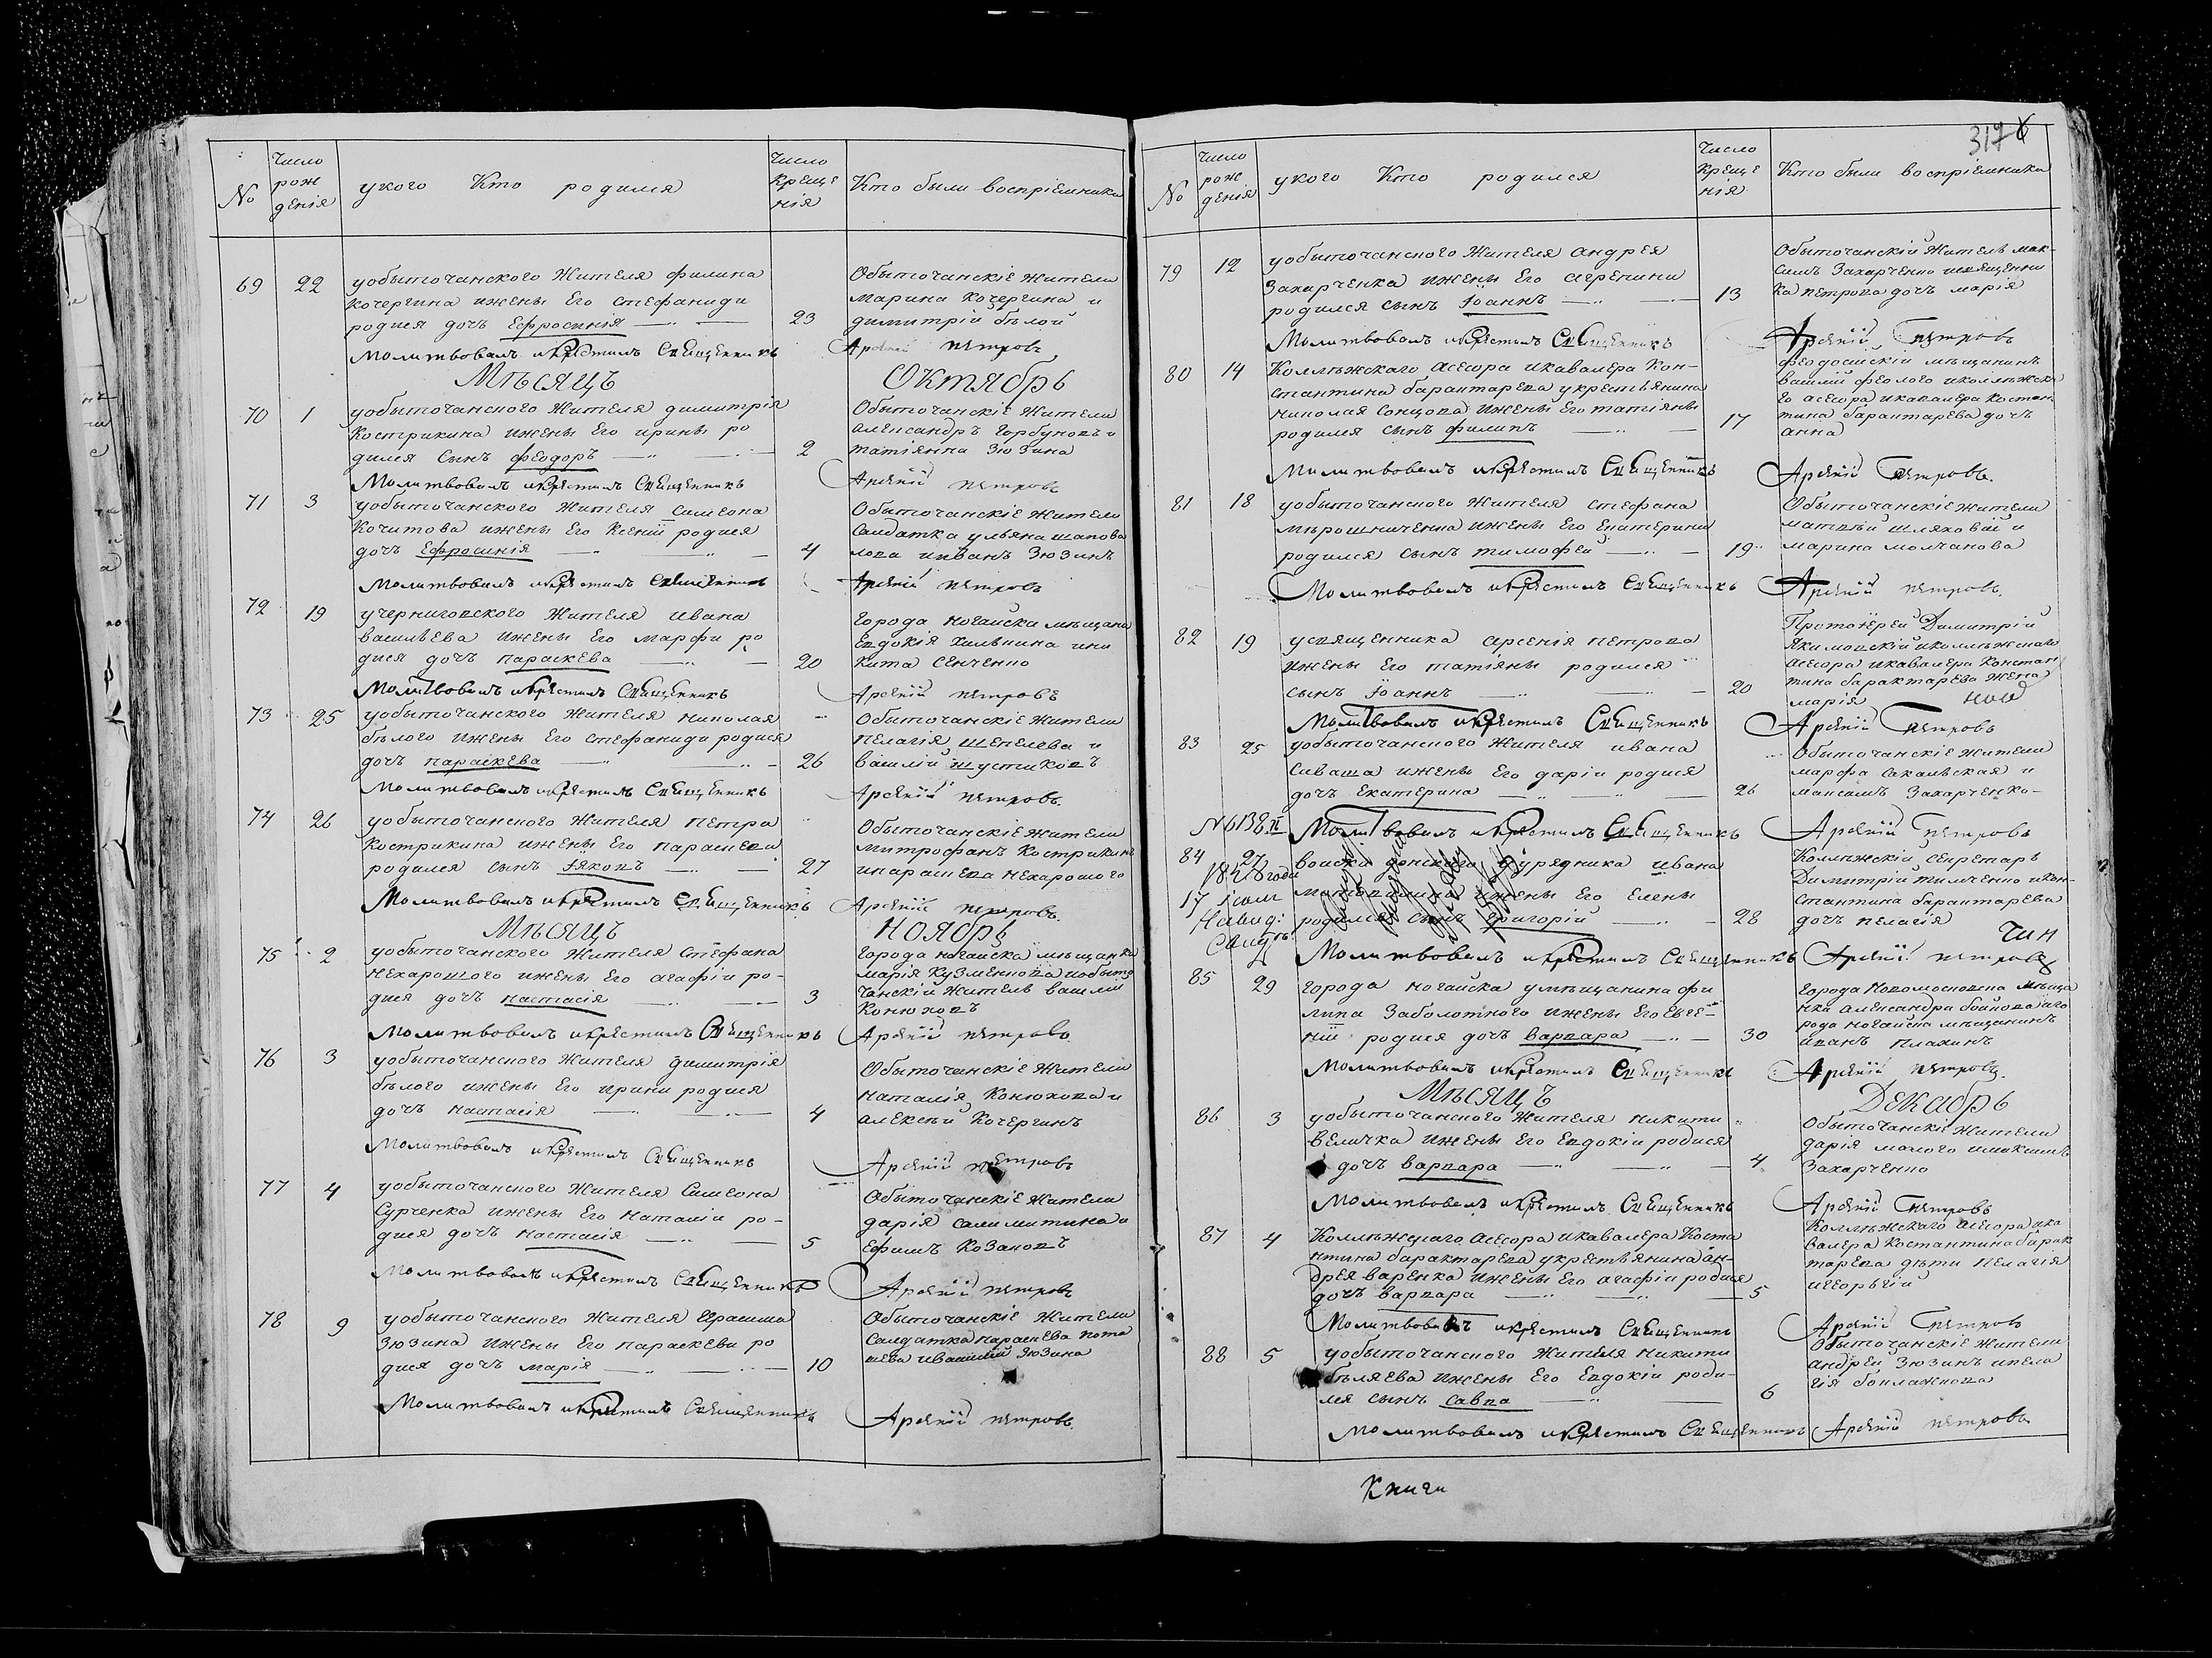 №
Число рож денія
укого Кто родился
Число Креще нія
Кто были воспріемники
69 22 уобыточанского Жителя филипа
Кочергина ижены Его стефаниди
родися дочь Ефросинія 23
Обыточанскіе жители
марина Кочергина и
димитрій белой
молитвовалъ икрестилъ Священникъ Арсеній петровъ
Мѣсяцъ Октябрь
70 1 уобыточанского Жителя димитрія
Кострикина ижены Его ирины ро
дился сынъ феодоръ 2
Обыточанскіе Жители
александръ Горбуновъ и
татіянна Зюзина
Молитвовалъ икрестилъ Священникъ Арсеній петровъ
71 3 уобыточанского Жителя симеона
Кочитова ижены Его Ксеніи родися
дочь Ефросинія 4
Обыточанскіе жители
Салдатка ульяна шапова
лова ииванъ Зюзинъ
Молитвовалъ икрестилъ Священникъ Арсеній петровъ
72 19 учерниговского Жителя ивана
васильева ижены Его марфи ро
дися дочь параскева 20
Города ногайска мещана
Евдокія ини
кита Сенченко
Молитвовалъ икрестилъ Священникъ Арсеній петровъ
73 25 уобыточанского жителя николая
бѣлого ижены Его стефаниди родися
дочь параскева 26
Обыточанскіе жители
пелагія шепелева и
василій шустиковъ
Молитвовалъ икрестилъ Священникъ Арсеній петровъ
74 26 уобыточанского Жителя петра
Кострикина ижены Его параскеви
родился сынъ Іяковъ 27
Обыточанскіе жители
митрофанъ Кострикинъ
ипараскева нехарошого
Молитвовалъ икрестилъ Священникъ Арсеній петровъ
Мѣсяцъ Ноябрь
75 2 уобыточанского жителя стефана
нехарошого ижены Его агафіи ро-
дися дочь настасія 3
Города ногайска мѣщанка
марія Кузменкова иобыто
чанскій житель василій
Конюховъ
Молитвовалъ икрестилъ Священникъ Арсеній петровъ
76 3 уобыточанского жителя димитрія
бѣлого ижены Его ирины родися
дочь настасія 4
Обыточанскіе жители
наталія Конюхова и
алексѣй Кочергинъ
Молитвовалъ икрестилъ Священникъ Арсеній петровъ
77 4 уобыточанского жителя Симеона
Сурченка ижены Его наталіи ро-
дися дочь настасія 5
Обыточанскіе жители
дарія салимитина и
Ефимъ Козаковъ
Молитвовалъ икрестилъ Священникъ Арсеній петровъ
78 9 уобыточанского жителя Герасима
Зюзина ижены Его параскеви ро
дися дочь марія 10
Обыточанскіе жители
Салдатка параскева пота
пева ивасилій Зюзина
Молитвовалъ икрестилъ Священникъ Арсеній петровъ
317
№
Число рож денія
укого Кто родился
Число Креще нія
Кто были воспріемники
79 12 уобыточанского Жителя андрея
Захарченка ижены Его агрепини
родился сынъ Іоаннъ 13
Обыточанскій житель мак-
симъ Захарченко исвященни
ка петрова дочь марія
Молитвовалъ икрестилъ Священникъ Арсеній Петровъ
80 14 Коллѣжскаго асесора икавалера Кон-
стантина барактарева укрестьянина
николая Сонцова ижены Его татіяны
родился сынъ филипъ 17
феодосійскій мѣщанинъ
василій феолого иколлѣжска
го асесора икавалера костан
тина барактарева дочь
анна
Молитвовалъ икрестилъ Священникъ Арсеній Петровъ.
81 18 уобыточанского жителя стефана
мѣрошниченка ижены Его Екатерини
родился сынъ тимофей 19
Обыточанскіе жители
матвѣй шляховай и
марина молчанова
Молитвовалъ икрестилъ Священникъ Арсеній петровъ.
82 19 усвященника арсенія петрова
ижены Его татіяны родился
сынъ Іоаннъ 20
Протоіерей Димитрій
Якимовскій иколлѣжскаго
асесора икавалера Констан
тина барактарева жена
марія
Молитвовалъ икрестилъ Священникъ Арсеній Петровъ
83 25 уобыточанского жителя ивана
Сиваша ижены Его даріи родися
дочь Екатерина 26
Обыточанскіе жители
марфа Сакальская и
максимъ Захарченко
Молитвовалъ икрестилъ Священникъ Арсеній Петровъ
N6138.
84 27 воиска донского уурядника ивана
ижены Его Елены
родился сынъ григорій 28
1828 года
17
Коллѣжскій секретарь
Димитрій тимченко икон-
стантина барактарева
дочь пелагія
Молитвовалъ икрестилъ Священникъ Арсеній петровъ
85 29 города ногайска умѣщанина фи
липа Заболотного ижены Его Евге-
ніи родися дочь варвара 30
Города новомосковска мѣща
нка александра бойкова иго
рода ногайска мѣщанинъ
иванъ плахинъ
Молитвовалъ икрестилъ Священникъ Арсеній петровъ.
Мѣсяцъ Декабрь
86 3 уобыточанского жителя никити
величка ижены Его Евдокіи родися
дочь варвара 4
Обыточанскіе жители
дарія малого имаксимъ
Захарченко
Молитвовалъ икрестилъ Священникъ Арсеній Петровъ
87 4 Коллѣжскаго асесора икавалера Коста
нтина барактарева укрестьянина ан-
дрея варенка ижены Его агафіи родися
дочь варвара 5
Коллѣжскаго асесора ика
валера Костантина барак
тарева дѣти пелагія
игеоргій
Молитвовалъ икрестилъ Священникъ Арсеній Петровъ
88 5 уобыточанского жителя никити
бѣляева ижены Его Евдокіи роди-
лся сынъ Савва 6
Обыточанскіе жители
андрей Зюзинъ ипела
гія баклажкова
Молитвовалъ икрестилъ Священникъ Арсеній петровъ
Книги